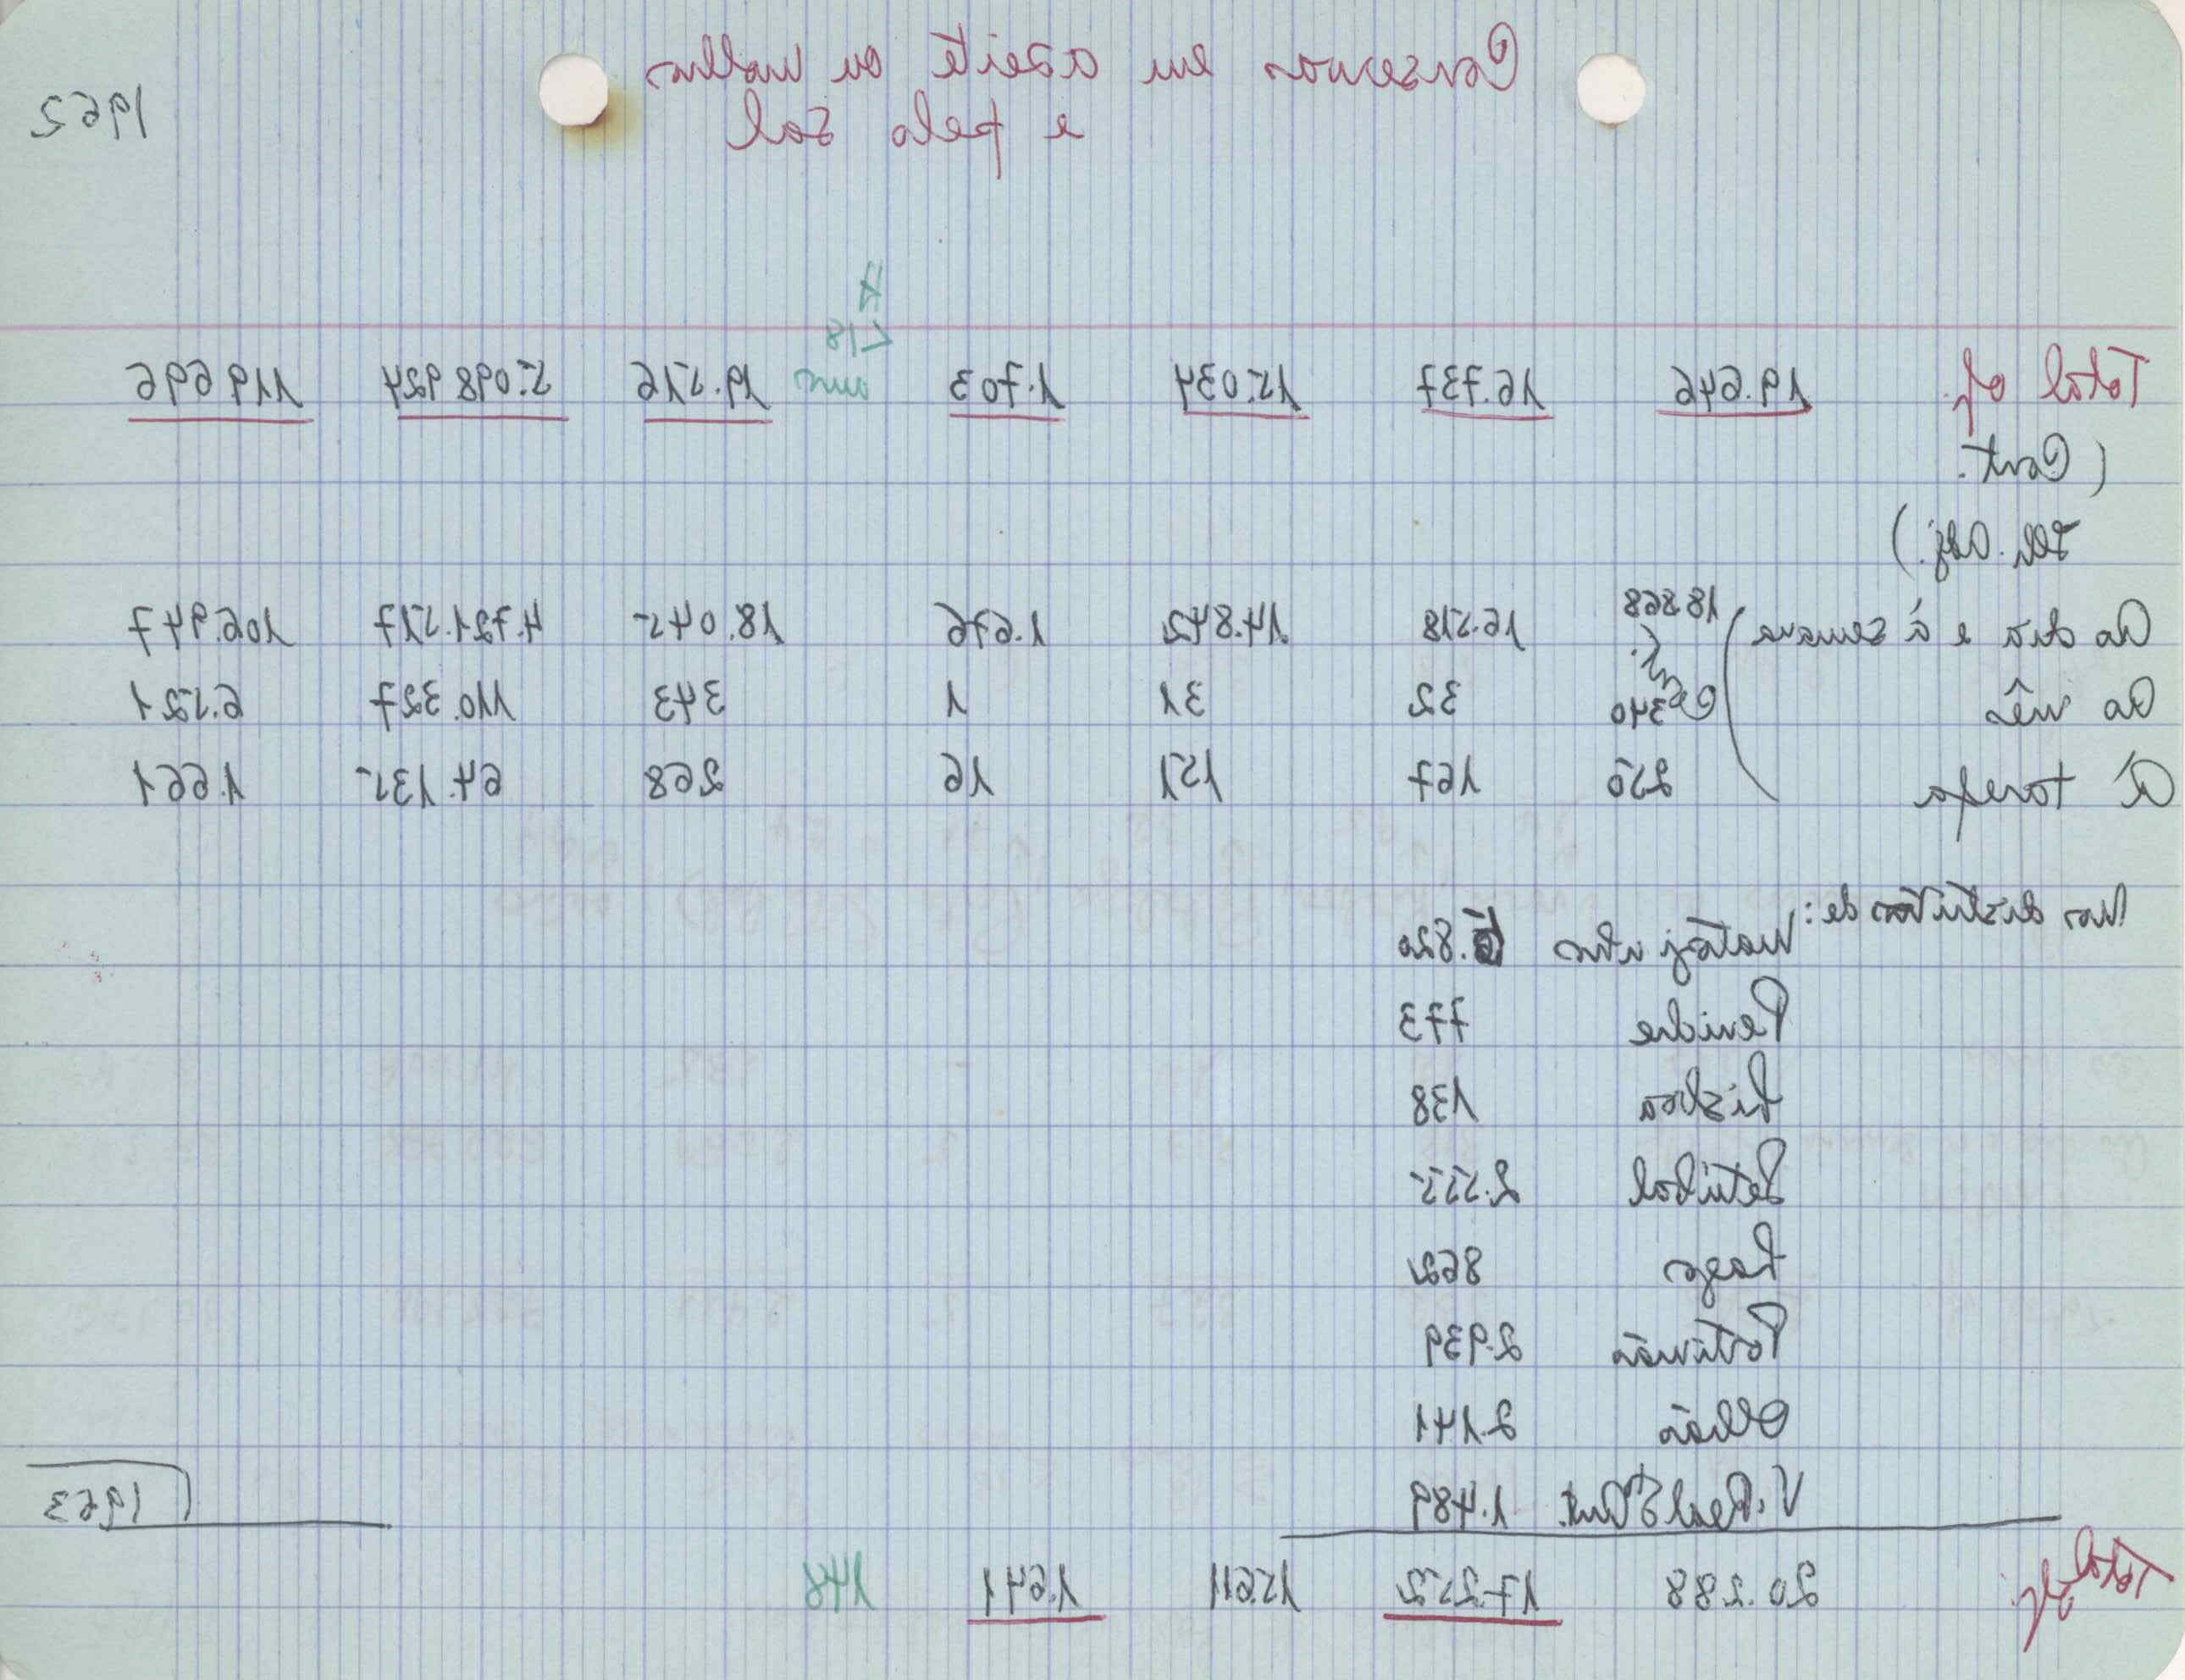 Conservas em azeite ou molhos
e pelo sal
1962
H
<18
anos
Total of. 19.646 16.737 15.034 1.703 19.516 5.098.924 119.696
(Cont.
Ilh. Adj.)
Ao dia e à semana 18.868 16.518 14.842 1.676 18.045 4.721.517 106.947
Ao mês 340 32 31 1 343 110.327 6.521
À tarefa 250 167 151 16 268 64.135 1.661
Nos distritos de:
Matozinhos 5.820
Peniche 773
Lisboa 138
Setúbal 2.555
Lagos 862
Portimão 2.939
Olhão 2.141
V. Real Stº Ant. 1.489
1963
Total of. 20.288 17.252 15.611 1.641 148